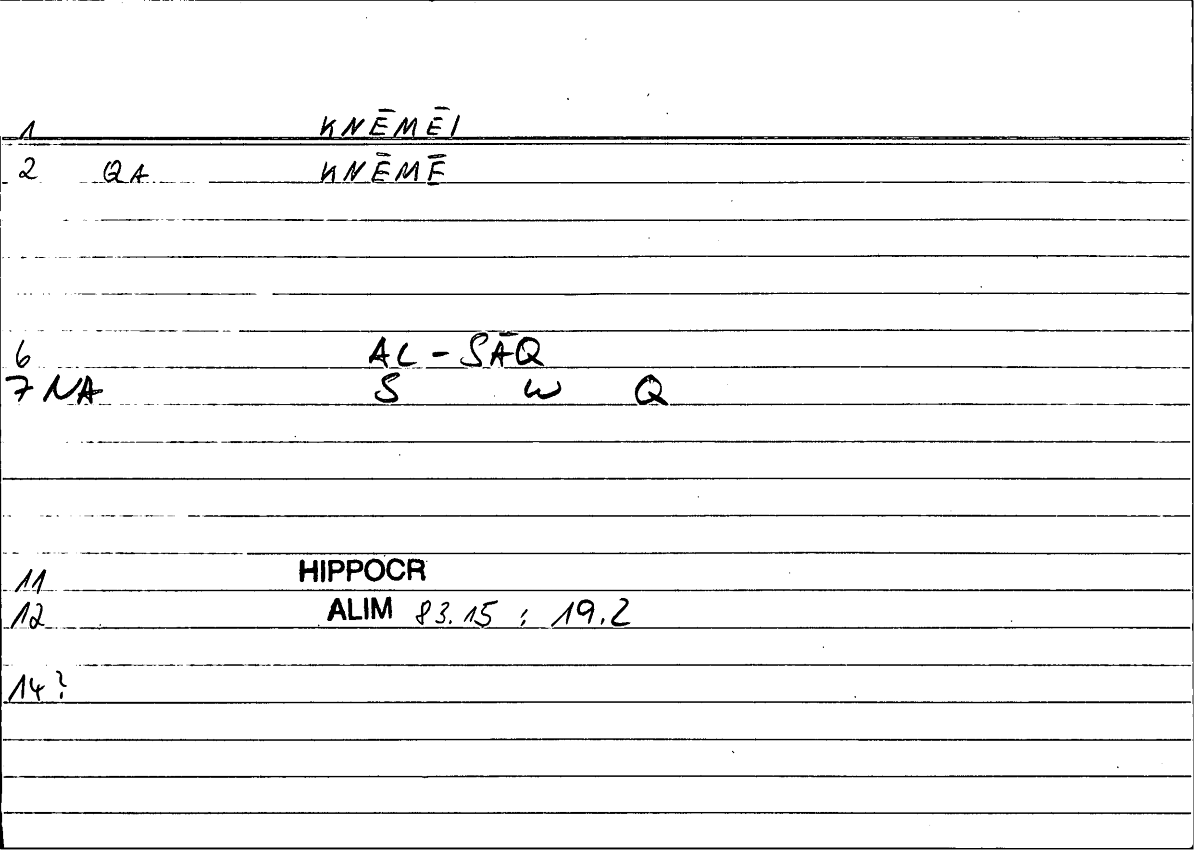 1 KNĒMĒI
2 QA KNĒMĒ
6 AL - SĀQ
7 NA S W Q
11 HIPPOCR
12 ALIM 83.15 : 19.2
14?